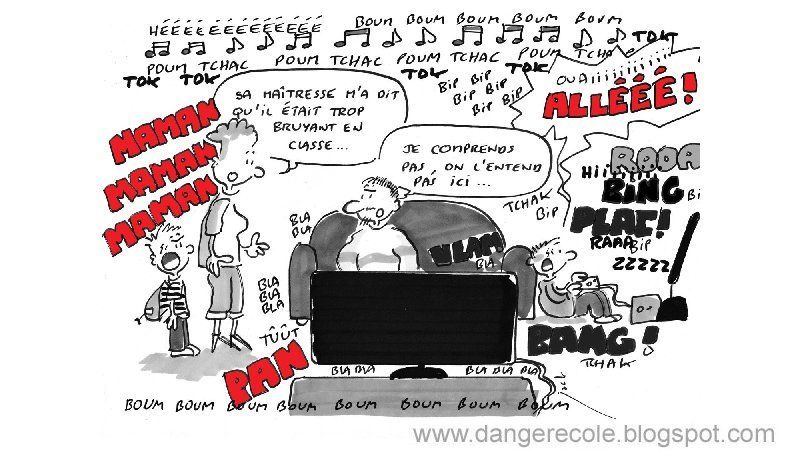 HÉÉÉÉÉÉÉÉÉÉÉÉÉ
BOUM BOUM BOUM BOUM BOUM
POUM TCHAC POUM TCHAC POUM TCHAC POUM TCHAC
TOK TOK TOK TOK TOK
BIP BIP
BIP BIP
BIP BIP
OUAIIIIIIIIIII
ALLÉÉÉ!
SA MAÎTRESSE M'A DIT
QU'IL ÉTAIT TROP
BRUYANT EN
CLASSE...
JE COMPRENDS
PAS, ON L'ENTEND
PAS ICI ...
MAMAN
MAMAN
MAMAN
RADA
HIIIIIIII
BING
BI
PLAC!
RAAA BIP
ZZZZZ
TCHAK
BIP
BLA
BLA
VLAM
BLA
BLA
BLA
BLA
TÛÛT
PAN
BANG!
TCHAK
BLA BLA
BLA BLA BLA
BOUM BOUM BOUM BOUM BOUM BOUM BOUM BOUM
www.dangerecole.blogspot.com